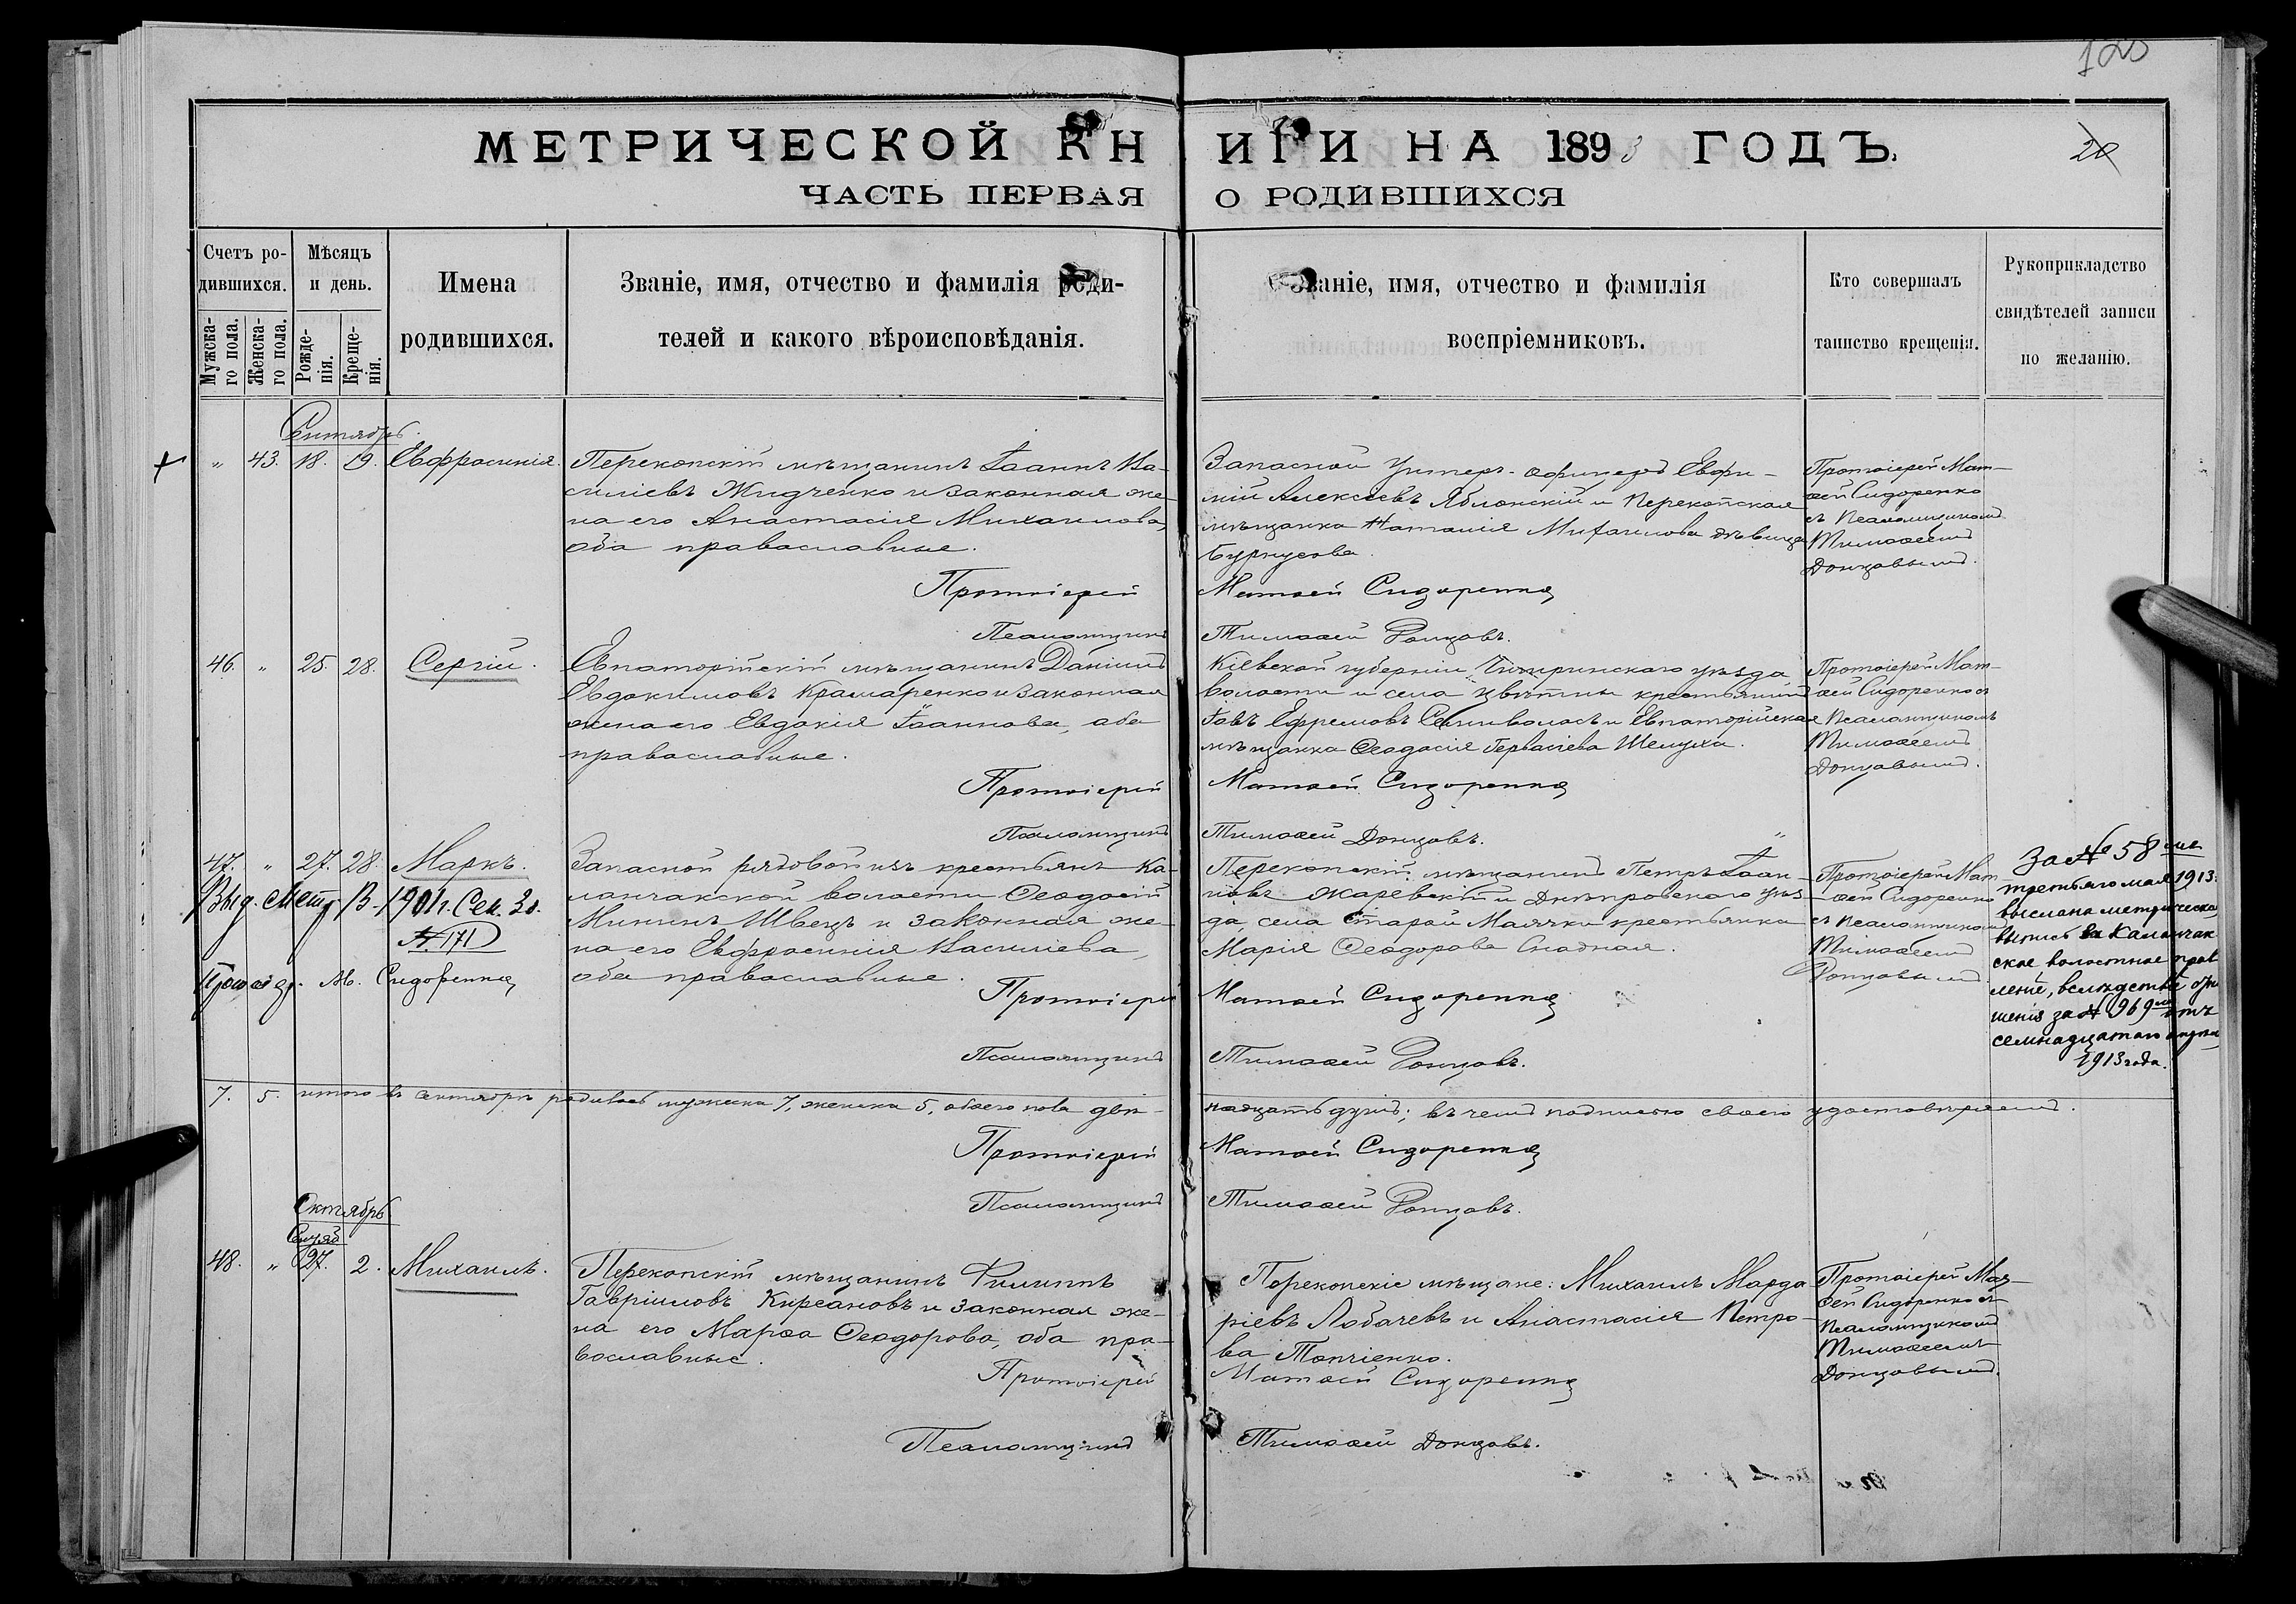 120
МЕТРИЧЕСКОЙ КНИГИ НА 1893 ГОДЪ.
20
ЧАСТЬ ПЕРВАЯ О РОДИВШИХСЯ
Счетъ ро-
дившихся.
Мужска-
го пола.
Женска-
го пола.
Мѣсяцъ
и день.
Рожде-
нія.
Креще-
нія.
Имена
родившихся.
Званіе, имя, отчество и фамилія роди-
телей и какого вѣроисповѣданія.
Званіе, имя, отчество и фамилія
воспріемниковъ.
Кто совершалъ
таинство крещенія.
Рукоприкладство
свидѣтелей записи
по желанію.
Сентябрь.
" 43. 18. 19. Евфросинія.
Перекопскій мѣщанинъ Іоаннъ Ва-
силіевъ Жидченко и законная же-
на его Анастасія Михаилова,
оба православные.
Запасной Унтеръ-офицеръ Евфи-
мій Алексѣевъ Яблонскій и Перекопская
мѣщанка Наталія Михаилова дѣвица
Протоіерей Мат-
ѳей Сидоренко
съ Псаломщикомъ
Тимоѳеемъ
Донцовымъ.
Протоіерей Матѳей Сидоренко
Псаломщикъ Тимоѳей Донцовъ.
46. " 25. 28. Сергій.
Евпаторійскій мѣщанинъ Даніилъ
Евдокимовъ Крамаренко и законная
жена его Евдокія Іоаннова, оба
православные.
Кіевской губерніи Чигиринскаго уѣзда
волости и села Цвѣтны крестьянинъ
Іовъ Ефремовъ и Евпаторійская
мѣщанка Ѳеодосія Гервасіева Шелуха.
Протоіерей Мат-
ѳей Сидоренко съ
Псаломщикомъ
Тимоѳеемъ
Донцовымъ.
Протоіерей Матѳей Сидоренко
Псаломщикъ Тимоѳей Донцовъ.
47. " 27. 28. Маркъ.
Выд. Метр. В. 1901 г. Сен. 30.
№ 171
М. Сидоренко
Запасной рядовой изъ крестьянъ Ка-
ланчакской волости Ѳеодосій
Мининъ Швецъ и законная же-
на его Евфросинія Василіева,
оба православные.
Перекопскій мѣщанинъ Петръ Іоан-
новъ Жаревскій и Днѣпровскаго уѣз-
да, села Старой Маячки крестьянка
Марія Ѳеодорова
Протоіерей Мат-
ѳей Сидоренко
съ Псаломщикомъ
Тимоѳеемъ
Донцовымъ
За № 58
третьяго мая 1913 г.
выслана метрическая
выпись въ Каланчак-
ское волостное прав-
леніе, вслѣдствіе
шенія за № 969 отъ
семнадцатаго апрѣля
1913 года.
Протоіерей Матѳей Сидоренко
Псаломщикъ Тимоѳей Донцовъ.
7. 5. итого въ Сентябрѣ родилось мужеска 7, женска 5, обоего пола двѣ-
надцать душъ; въ чемъ подписью своею удостовѣряемъ.
Протоіерей Матѳей Сидоренко
Псаломщикъ Тимоѳей Донцовъ.
Октябрь
Сентяб
48. " 27. 2. Михаилъ.
Перекопскій мѣщанинъ Филиппъ
Гавріиловъ Кирсановъ и законная же-
на его Марѳа Ѳеодорова, оба пра-
вославные.
Перекопскіе мѣщане: Михаилъ Марда-
ріевъ Лобачевъ и Анастасія Петро-
ва Топчіенко.
Протоіерей Мат-
ѳей Сидоренко съ
Псаломщикомъ
Тимоѳеемъ
Донцовымъ.
Протоіерей Матѳей Сидоренко
Псаломщикъ Тимоѳей Донцовъ.